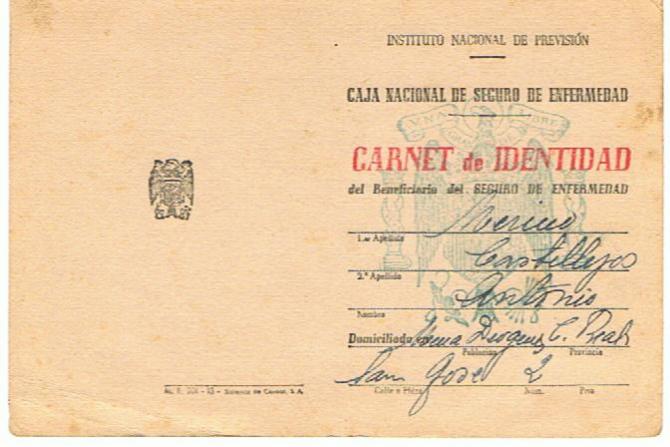 INSTITUTO NACIONAL DE PREVISIÓN
CAJA NACIONAL DE SEGURO DE ENFERMEDAD
UNA LIBRE
CARNET de IDENTIDAD
del Beneficiario del SEGURO DE ENFERMEDAD
Merino
1.er Apellido
Castillejos
2.º Apellido
Antonio
Nombre
Domiciliado C. Real
Población Provincia
San José 2
Calle o Plaza Núm. Piso